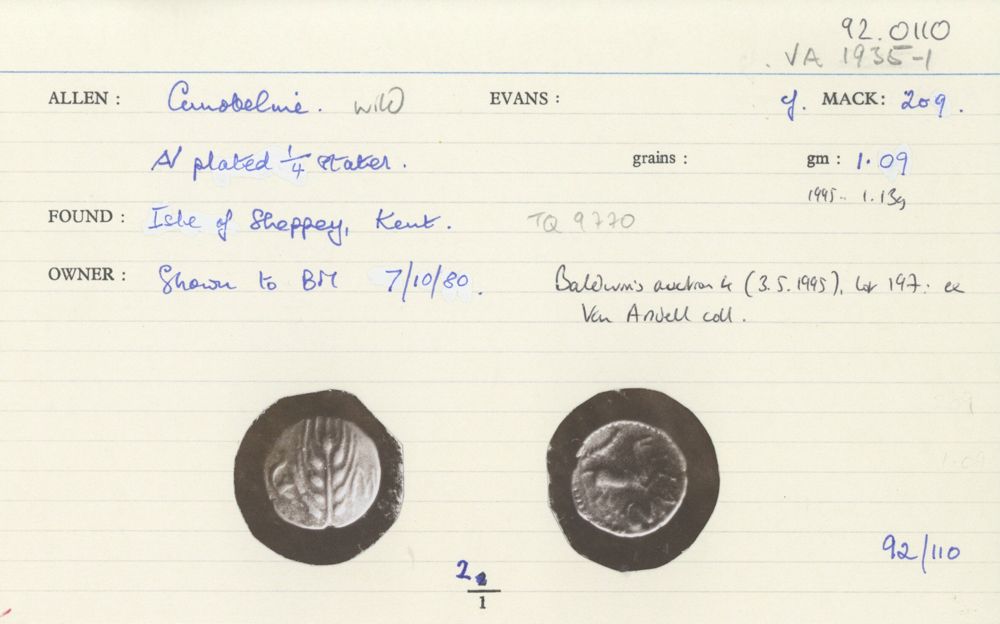 92.0110
VA 1935-1
ALLEN : Cunobeline. wild EVANS : cf. MACK: 209.
AV plated 1/4 stater. grains : gm : 1.09
1995 - 1.13g
FOUND : Isle of Sheppey, Kent. TQ 9770
OWNER : Shown to BM 7/10/80. Baldwin's auction 4 (3.5.1995), lot 197. ex
Van Arsdell coll.
1.09
92/110
2
1